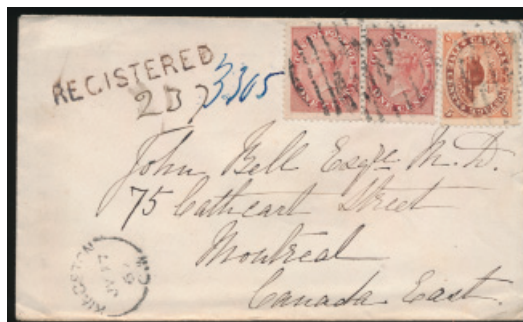 REGISTERED
237 3305
John Bell Esqre M.D.
75 Cathcart Street
Montreal
Canada East.
KINGSTON
C.W.